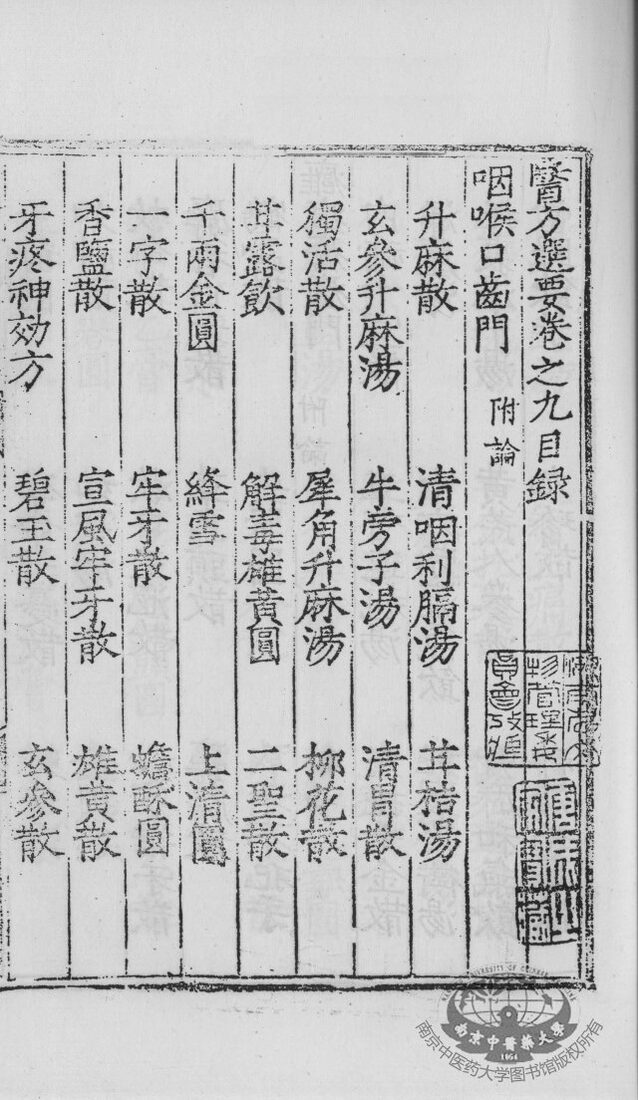 醫方選要卷之九目録
咽喉口齒門 附論
升麻散 清咽利膈湯 甘桔湯
玄參升麻湯 牛旁子湯 清胃散
獨活散 犀角升麻湯 柳花散
甘露飲 解毒雄黃圓 二聖散
千兩金圓 絳雪 上清圓
一字散 牢牙散 蟾酥圓
香鹽散 宣風牢牙散 雄黃散
牙疼神効方 碧玉散 玄參散
南京中醫藥大學
1954
南京中医药大学图书馆版权所有